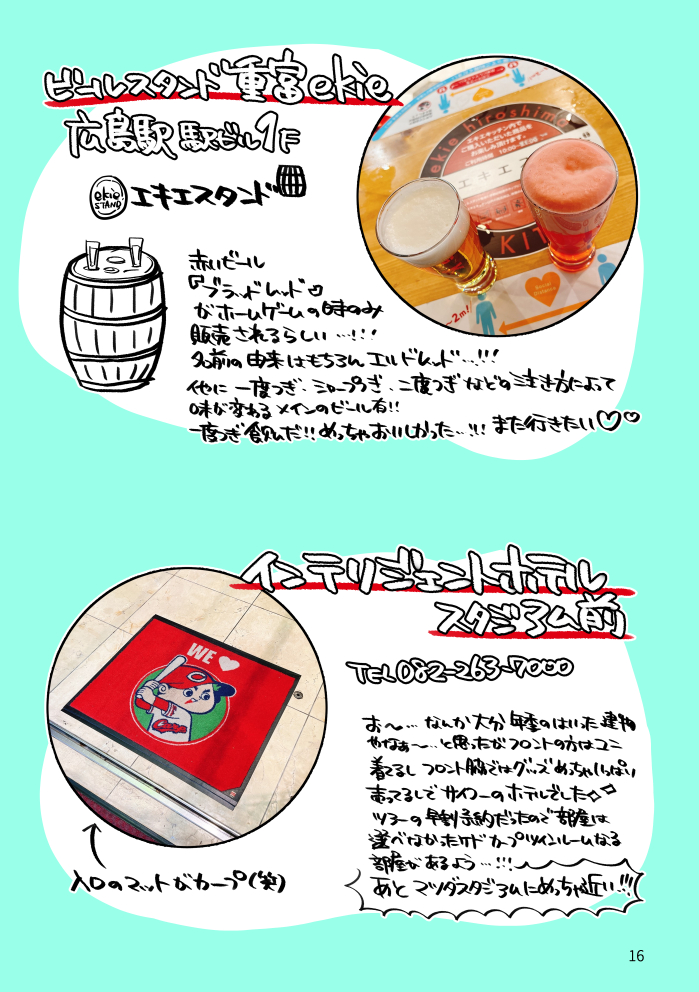 ビールスタンド重富ekie
広島駅 駅ビル1F
ekie!
STAND
エキエスタンド
ekie hiroshima
エキエキッチン内で
ご購入いただいた商品を
お楽しみ頂けます。
エキエ
KIT
~2m!
赤いビール
『ブラッドレッド』
がホームゲームの時のみ
販売されるらしい…!!!
名前の由来はもちろんエルドレッド…!!!
他に 一度つぎ・シャープつぎ・二度つぎ などの注ぎ方によって
味が変わる メインのビール有!!
一度つぎ飲んだ!!めっちゃおいしかった…!!! また行きたい♡♡
インテリジェントホテル
スタジアム前
TEL 082-263-7000
WE
Carp
お〜…なんか大分 年季のはいった建物
やなぁ〜…と思ったがフロントの方はユニ
着てるし フロント脇ではグッズめっちゃいっぱい
売ってるしで サイコーのホテルでした◇◇
ツアーの早割予約だったので部屋は
選べなかったけどカープツインルームなる
部屋があるよう…!!!
あと マツダスタジアムにめっちゃ近い!!!
入口のマットがカープ(笑)
16